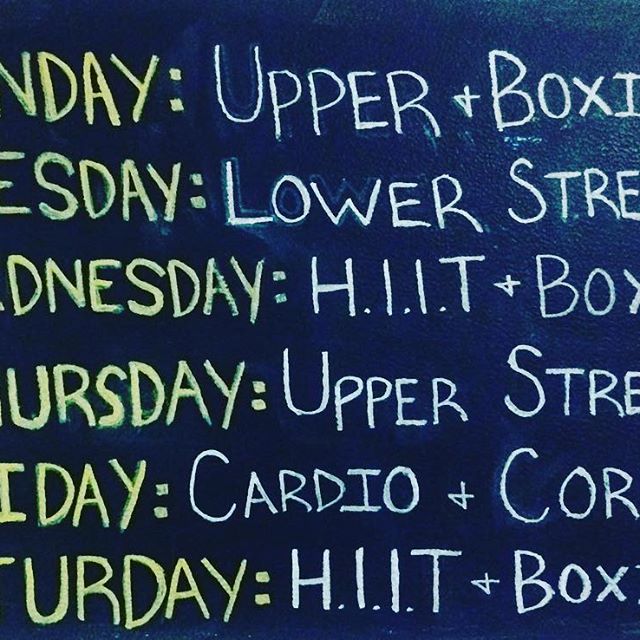 NDAY: UPPER + BOXI
ESDAY: LOWER STRE
DNESDAY: H.I.I.T + BOX
URSDAY: UPPER STRE
IDAY: CARDIO + COR
TURDAY: H.I.I.T + BOXI